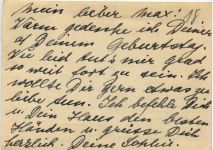 mein lieber Max!
Warm gedenke ich Deiner
a Deinem Geburtstag.
Wie leid tut's mir grad
so weit fort zu sein. Ich
wollte Dir gern etwas zu
liebe tun. Ich befehle Dich
u Dein Haus den besten
Händen u. grüsse Dich
herzlich. Deine Sophie.